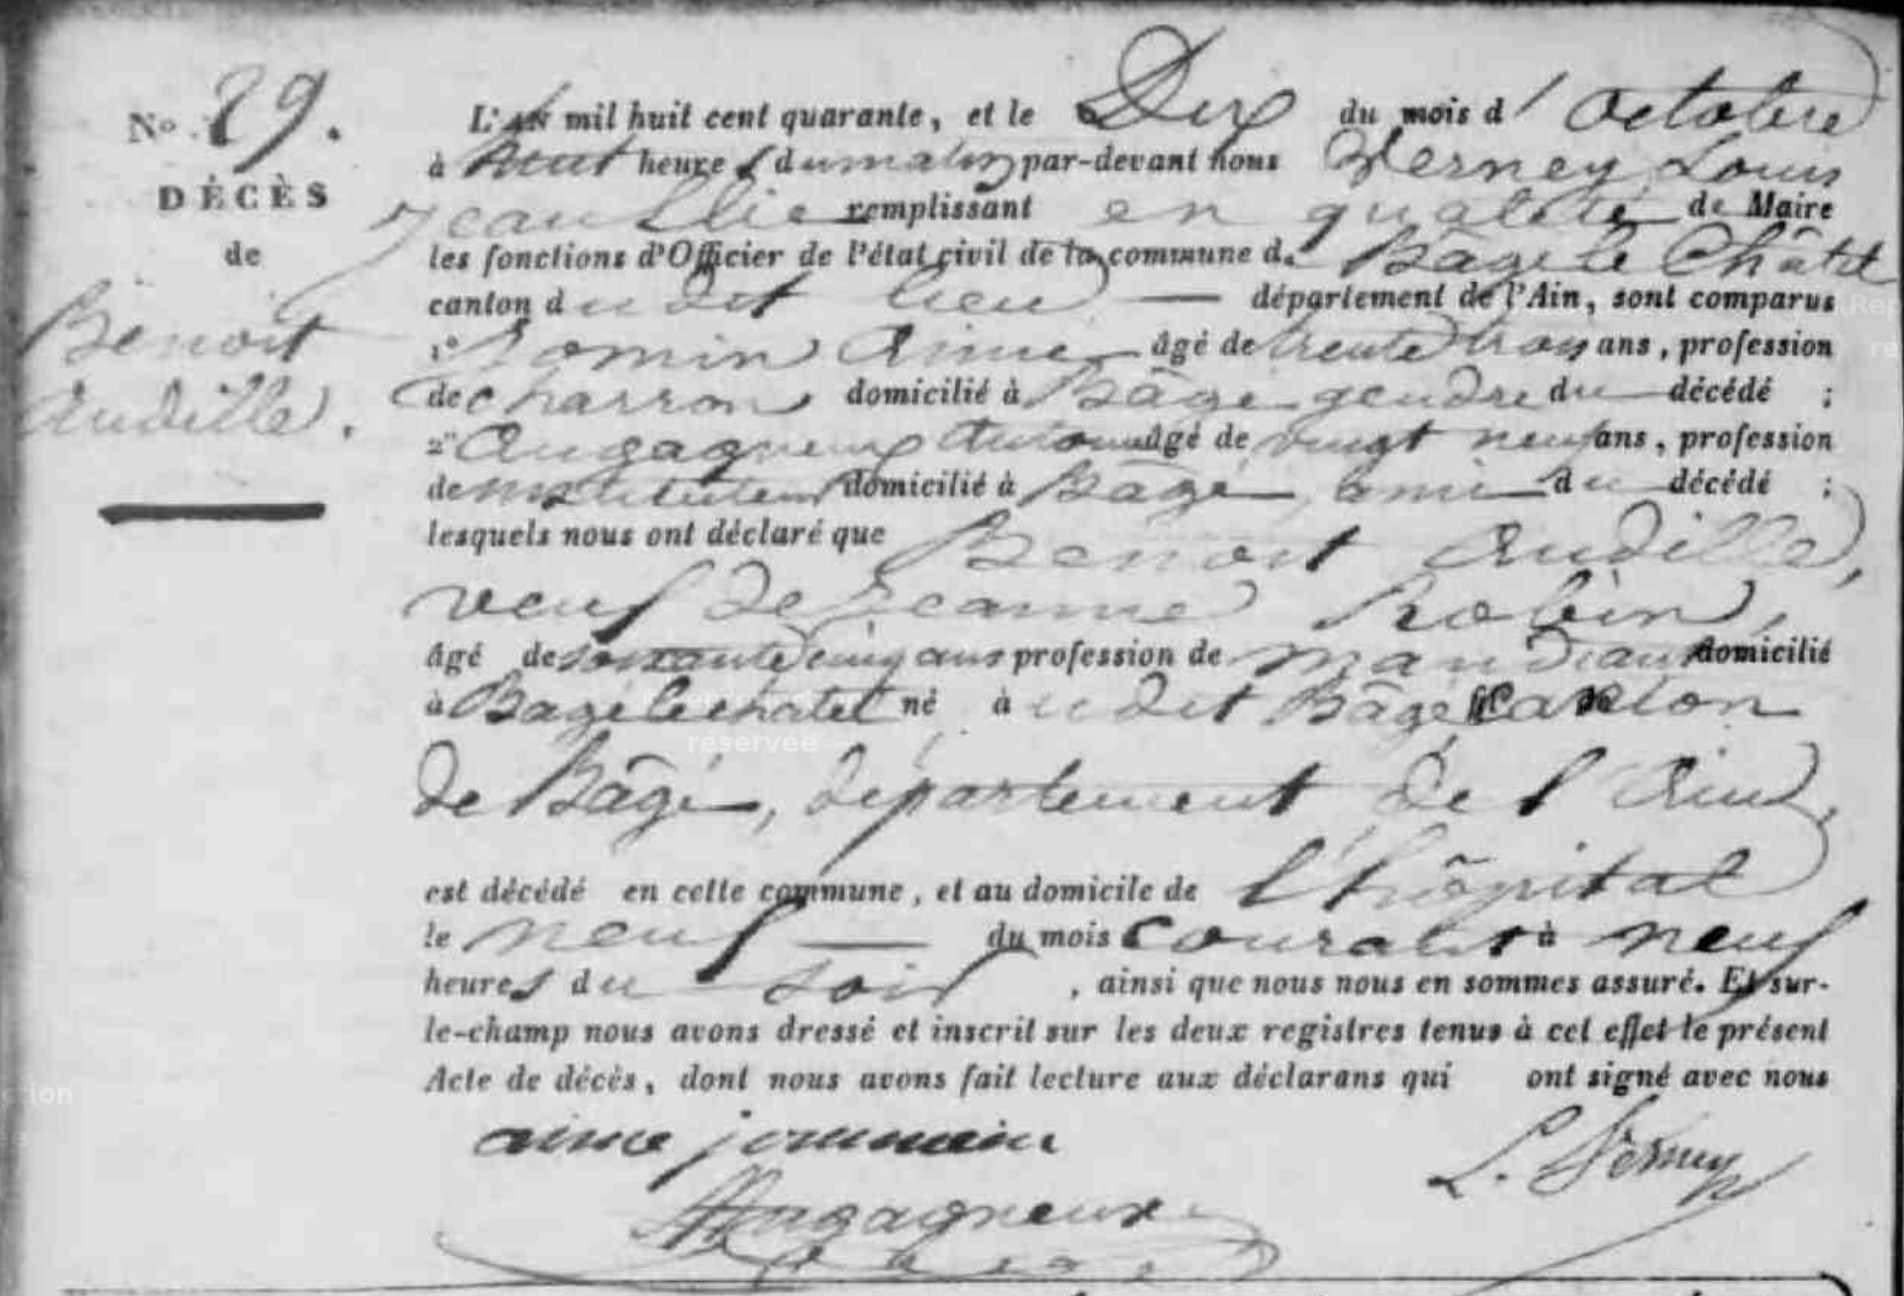 No. 29.
DÉCÈS
de
Benoit
Audille.
L'an mil huit cent quarante, et le Dix du mois d'Octobre
à huit heures du matin par-devant nous Verney Louis
Jean Elie remplissant en qualité de Maire
les fonctions d'Officier de l'état civil de la commune de Bâgé le Châtel
canton du dit lieu — département de l'Ain, sont comparus
1o Jomin Aimé âgé de trente trois ans, profession
de charron domicilié à Bâgé gendre du décédé ;
2o Augagneux Antoine âgé de vingt neuf ans, profession
de instituteur domicilié à Bâgé, ami du décédé ;
lesquels nous ont déclaré que Benoit Audille,
veuf de Jeanne Robin,
âgé de soixante cinq ans profession de mandiant domicilié
à Bagé le chatel né à u dit Bâgé, canton
de Bâgé, département de l'Ain,
est décédé en cette commune, et au domicile de l'hôpital
le neuf — du mois courant à neuf
heures du soir, ainsi que nous nous en sommes assuré. Et sur-
le-champ nous avons dressé et inscrit sur les deux registres tenus à cet effet le présent
Acte de décès, dont nous avons fait lecture aux déclarans qui ont signé avec nous
aime jommain
L. Verney
Augagneux